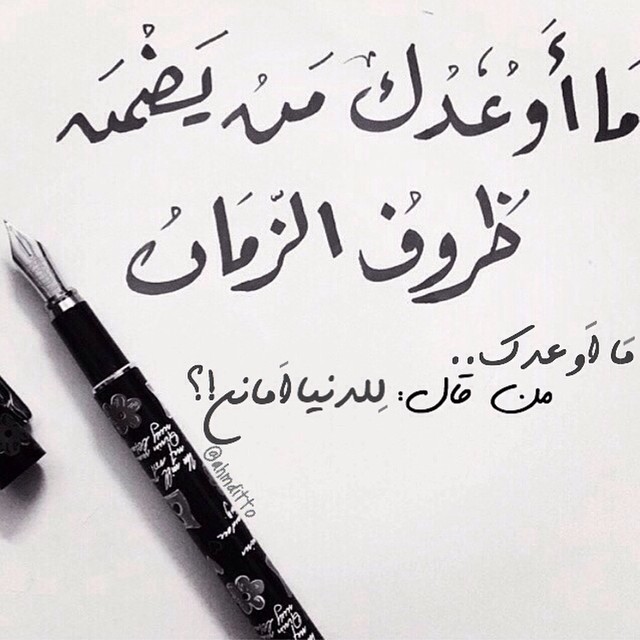 مَا أَوعُدُك مَن يَضْمَن
ظُروُف الزّمَانُ
مَا اَوعدك..
من قال: لِلدنيا اَمانن!؟
@ahmditto